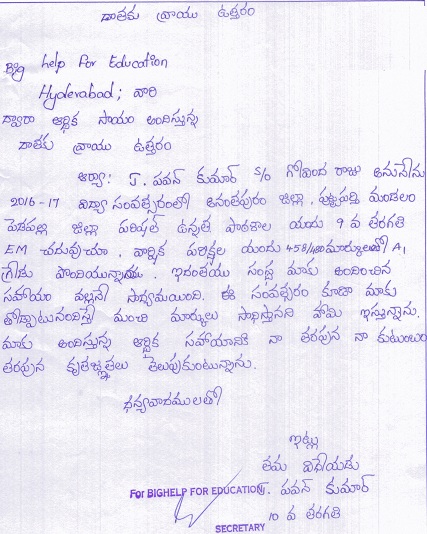 దాతకు వ్రాయు ఉత్తరం
Big help For Education
Hyderabad; వారి
ద్వారా ఆర్థిక సాయం అందిస్తున్న
దాతకు వ్రాయు ఉత్తరం
ఆర్యా: J. పవన్ కుమార్ S/o గోవింద రాజు అనునేను
2016-17 విద్యా సంవత్సరంలో అనంతపురం జిల్లా, పుట్టపర్తి మండలం
పెడపల్లి జిల్లా పరిషత్ ఉన్నత పాఠశాల యందు 9 వ తరగతి
EM చదువుచూ, వార్షిక పరీక్షల యందు 458/480 మార్కులతో A1
గ్రేడు పొందియున్నాను. ఇదంతయు సంస్థ మాకు అందించిన
సహాయం వల్లనే సాధ్యమయింది. ఈ సంవత్సరం కూడా మాకు
తోడ్పాటునందిస్తే మంచి మార్కులు సాధిస్తానని హామీ ఇస్తున్నాను.
మాకు అందిస్తున్న ఆర్థిక సహాయానికి నా తరపున నా కుటుంబం
తరపున కృతజ్ఞతలు తెలుపుకుంటున్నాను.
ధన్యవాదములతో
ఇట్లు
తమ విధేయుడు
For BIGHELP FOR EDUCATION J. పవన్ కుమార్
10 వ తరగతి
SECRETARY